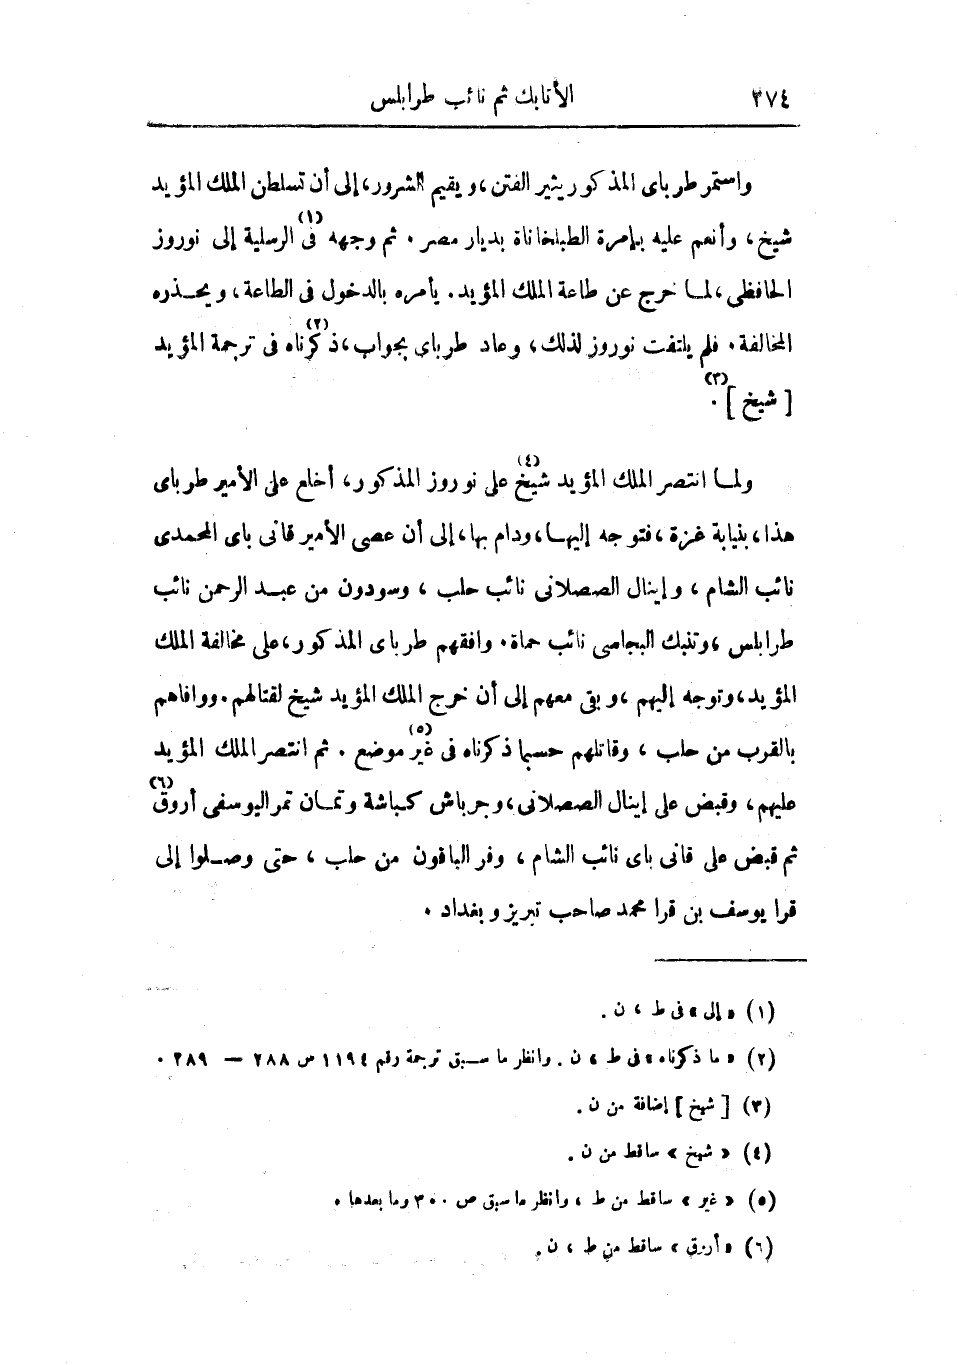 ٣٧٤ الأتابك ثم نائب طرابلس
واستمر طرباى المذكور يثير الفتن ، ويقيم الشرور ، إلى أن تسلطن الملك المؤيد
شيخ ، وأنعم عليه بإمرة الطبلخاناة بديار مصر . ثم وجهه فى (١) الرسلية إلى نوروز
الحافظى ، لما خرج عن طاعة الملك المؤيد . يأمره بالدخول فى الطاعة ، ويحذره
المخالفة . فلم يلتفت نوروز لذلك ، وعاد طرباى بجواب ، ذكرناه (٢) فى ترجمة المؤيد
[ شيخ ] (٣) .
ولما انتصر الملك المؤيد شيخ (٤) على نوروز المذكور ، أخلع على الأمير طرباى
هذا ، بنيابة غزة ، فتوجه إليها ، ودام بها ، إلى أن عصى الأمير قانى باى المحمدى
نائب الشام ، وإينال الصصلانى نائب حلب ، وسودون من عبد الرحمن نائب
طرابلس ، وتنبك البجاسى نائب حماة . وافقهم طرباى المذكور ، على مخالفة الملك
المؤيد ، وتوجه إليهم ، وبقى معهم إلى أن خرج الملك المؤيد شيخ لقتالهم . ووافاهم
بالقرب من حلب ، وقاتلهم حسبما ذكرناه فى غير (٥) موضع . ثم انتصر الملك المؤيد
عليهم ، وقبض على إينال الصصلانى ، وجرباش كباشة وتمان تمر اليوسفى أروق (٦)
ثم قبض على قانى باى نائب الشام ، وفر الباقون من حلب ، حتى وصلوا إلى
قرا يوسف بن قرا محمد صاحب تبريز وبغداد .
(١) « إلى » فى ط ، ن .
(٢) « ما ذكرناه » فى ط ، ن . وانظر ما سبق ترجمة رقم ١١٩٤ ص ٢٨٨ – ٢٨٩ .
(٣) [ شيخ ] إضافة من ن .
(٤) « شيخ » ساقط من ن .
(٥) « غير » ساقط من ط ، وانظر ما سبق ص ٣٠٠ وما بعدها .
(٦) « أرزق » ساقط من ط ، ن .